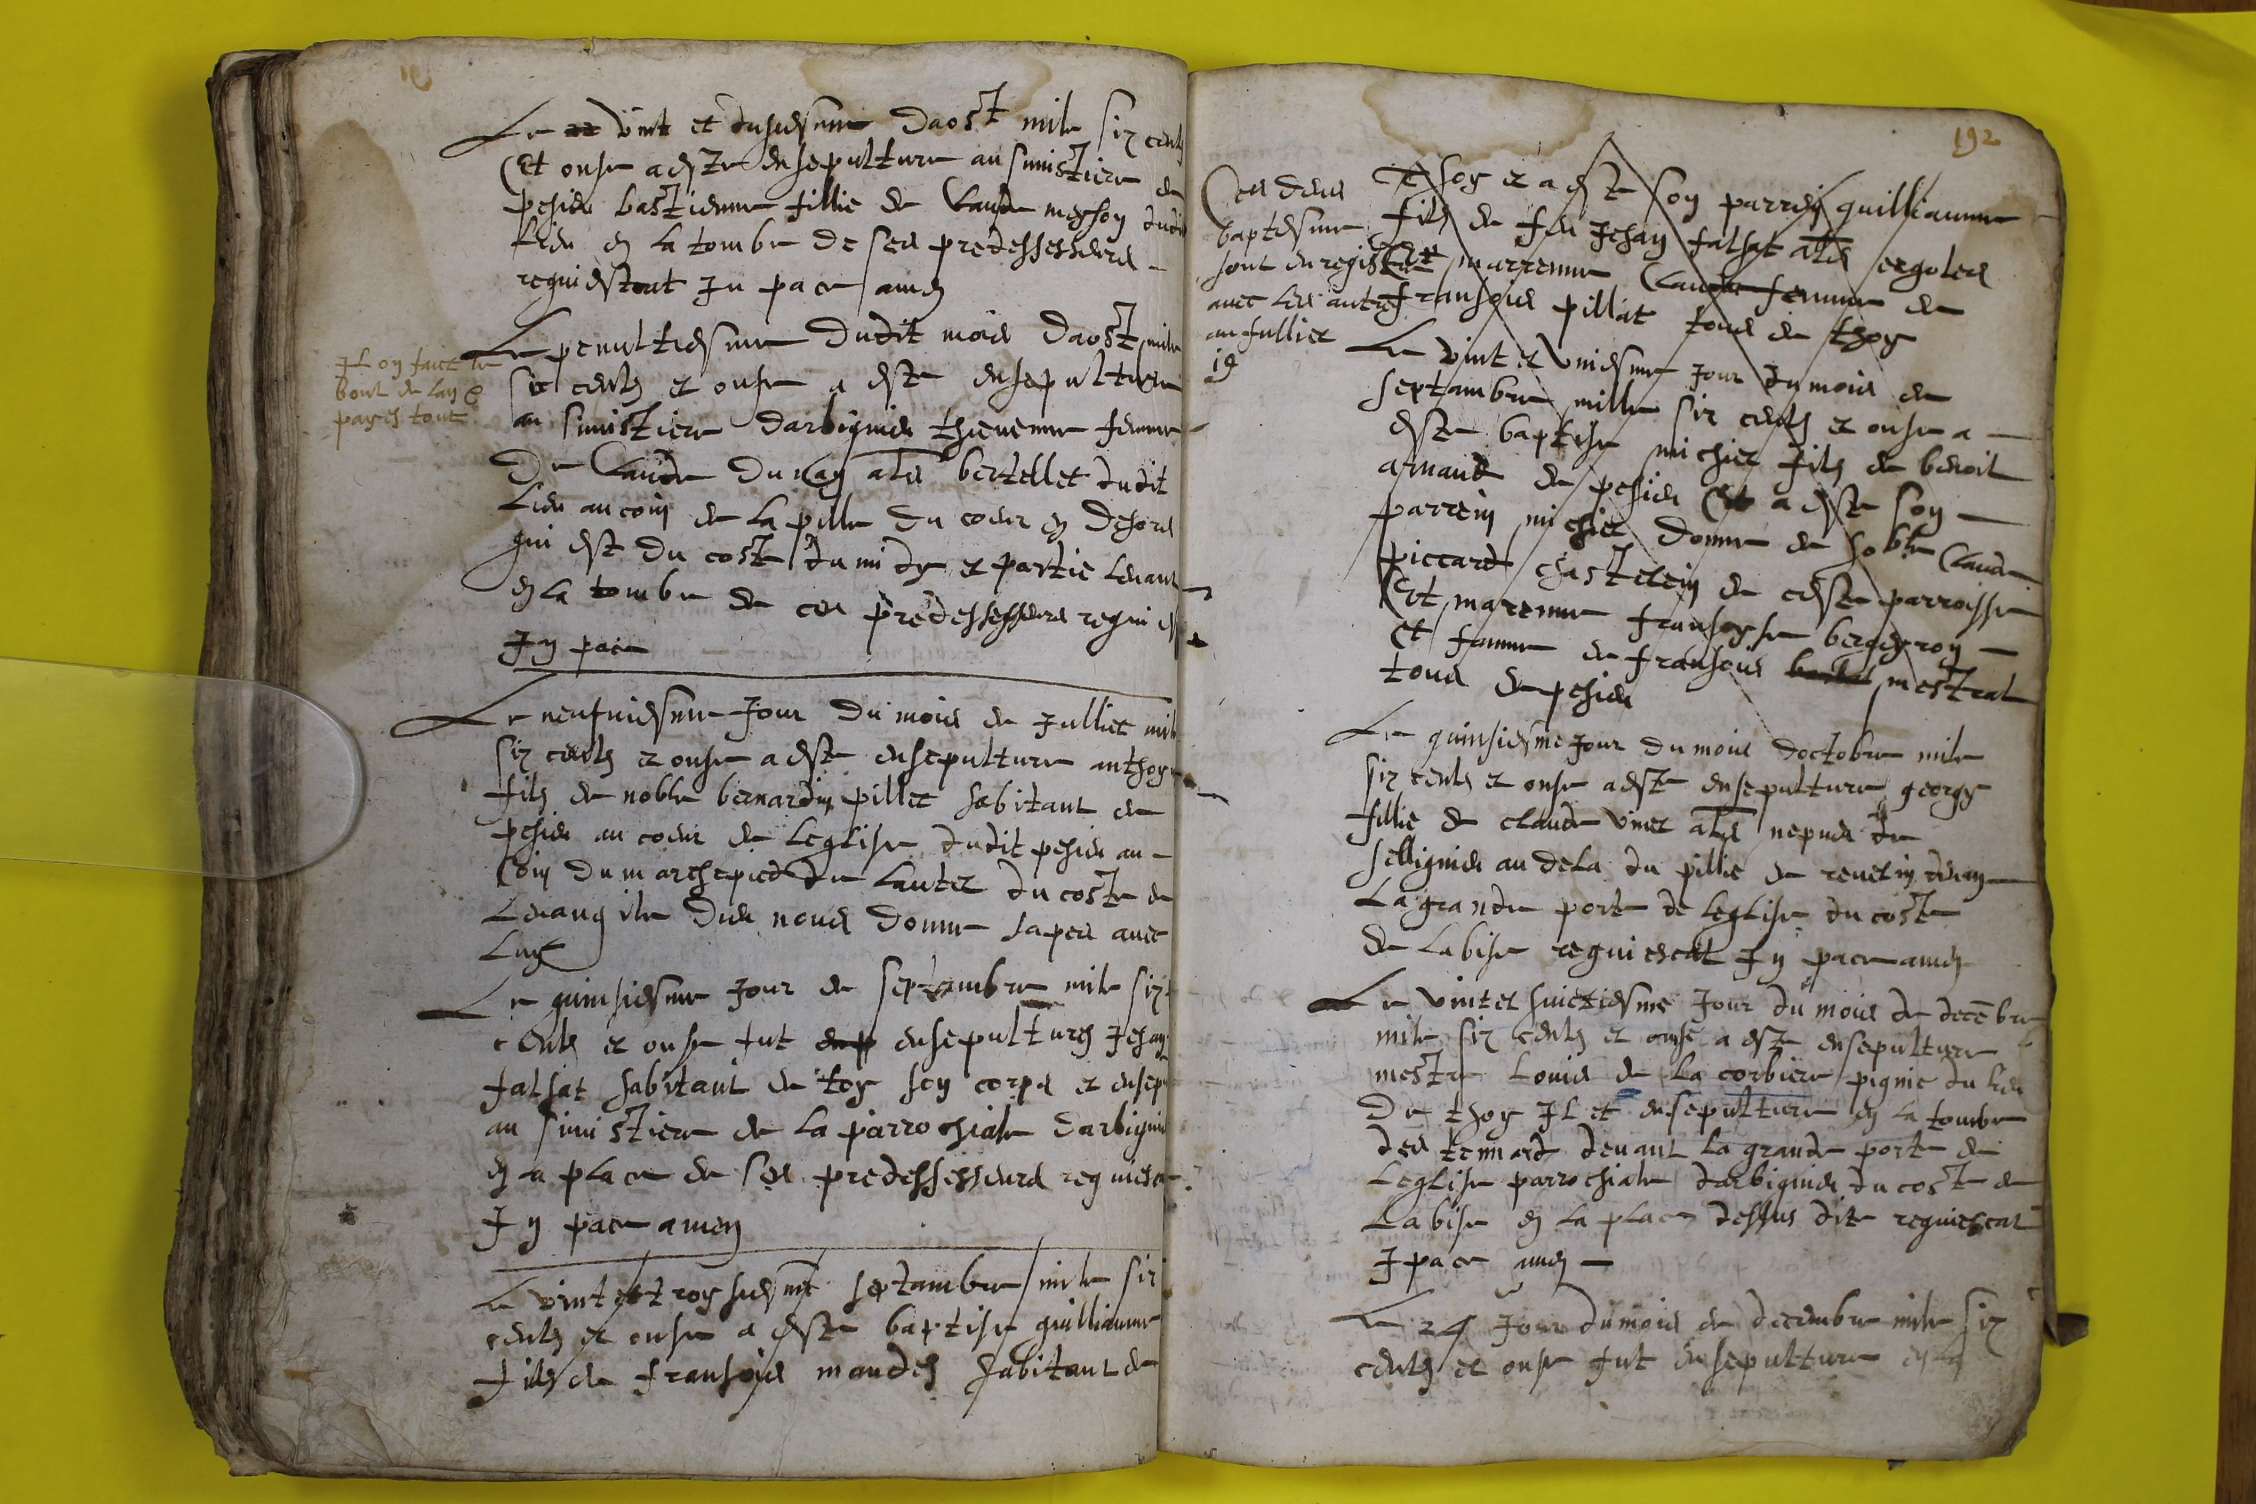 Le vint et dusiesme daost mile six cents
Et onse a este ensepulture au simistiere de
pesieu bastienne fillie de Claude meyson dudit
lieu en la tombe de ses predessesseurs
requiescant In pace amen
Le penultiesme dudit mois daost mile
six cents et onse a este ensepulture
au simistiere darbignieu thievenne femme
De Claude du Cay als bertellet dudit
Lieu au coin de la pille du coeur en dehors
qui est du coste du midy et partie levant
en la tombe de ces predessesseurs requies
In pace
Il on faict le
bout de lan &
payes tout
Le neufviesme Jour du mois de Julliet mile
six cents et onse a este ensepulture anthoyne
fils de noble bernardin pillet habitant de
pesieu au coeur de leglise dudit pesieu au
Coin du marchepied de Lautel du coste de
Levangile dieu nous donne sa pes avec
luy
Le quinsiesme Jour de septambre mile six
cents et onse fut ensepulturé Jehan
falsat habitant de toy son corps et ensep
au simistiere de la parrochiale darbignieu
en la place de ses predessesseurs requiescat
In pace amen
Le vint et troysiesme septambre mile six
cents et onse a este baptise guilliaume
fils de fransois maudes habitant de
192
Ces deus
baptesme
sont enregistré
avec les autres
au fulliet
19
thoy et a este son parrein guilliaume
fils de feu Jehan falsat als ergoles
marrenne Claude femme de
fransois pillat tous de thoy
Le vint et uniesme Jour du mois de
septambre mille six cents et onse a
este baptise michiel fils de benoit
arnaud de pesieu Et a este son
parrein michiel donne de noble Claude
piccard chastelein de ceste parroisse
Et marenne fransoyse bergeyron
et famme de fransois mestral
tous de pesieu
Le quinsiesme Jour du mois doctobre mile
six cents et onse a este ensepulture georgy
fillie de claude vinet als nepveu de
sellignieu au dela du pillie de revelin devan
La grande porte de leglise du coste
de la bise requiescat In pace amen
Le vint et huictiesme Jour du mois de decembre
mile six cents et onse a este ensepulture
mestre Louis de la corbiere pignie du lieu
De thoy Il et ensepulture en la tombe
des tennard devant la grande porte de
Leglise parrochiale darbignieu du coste de
La bise en la place dessus dite requiescat
I pace amen
Le 24 Jour du mois de decembre mile six
cents et onse fut ensepulture en la